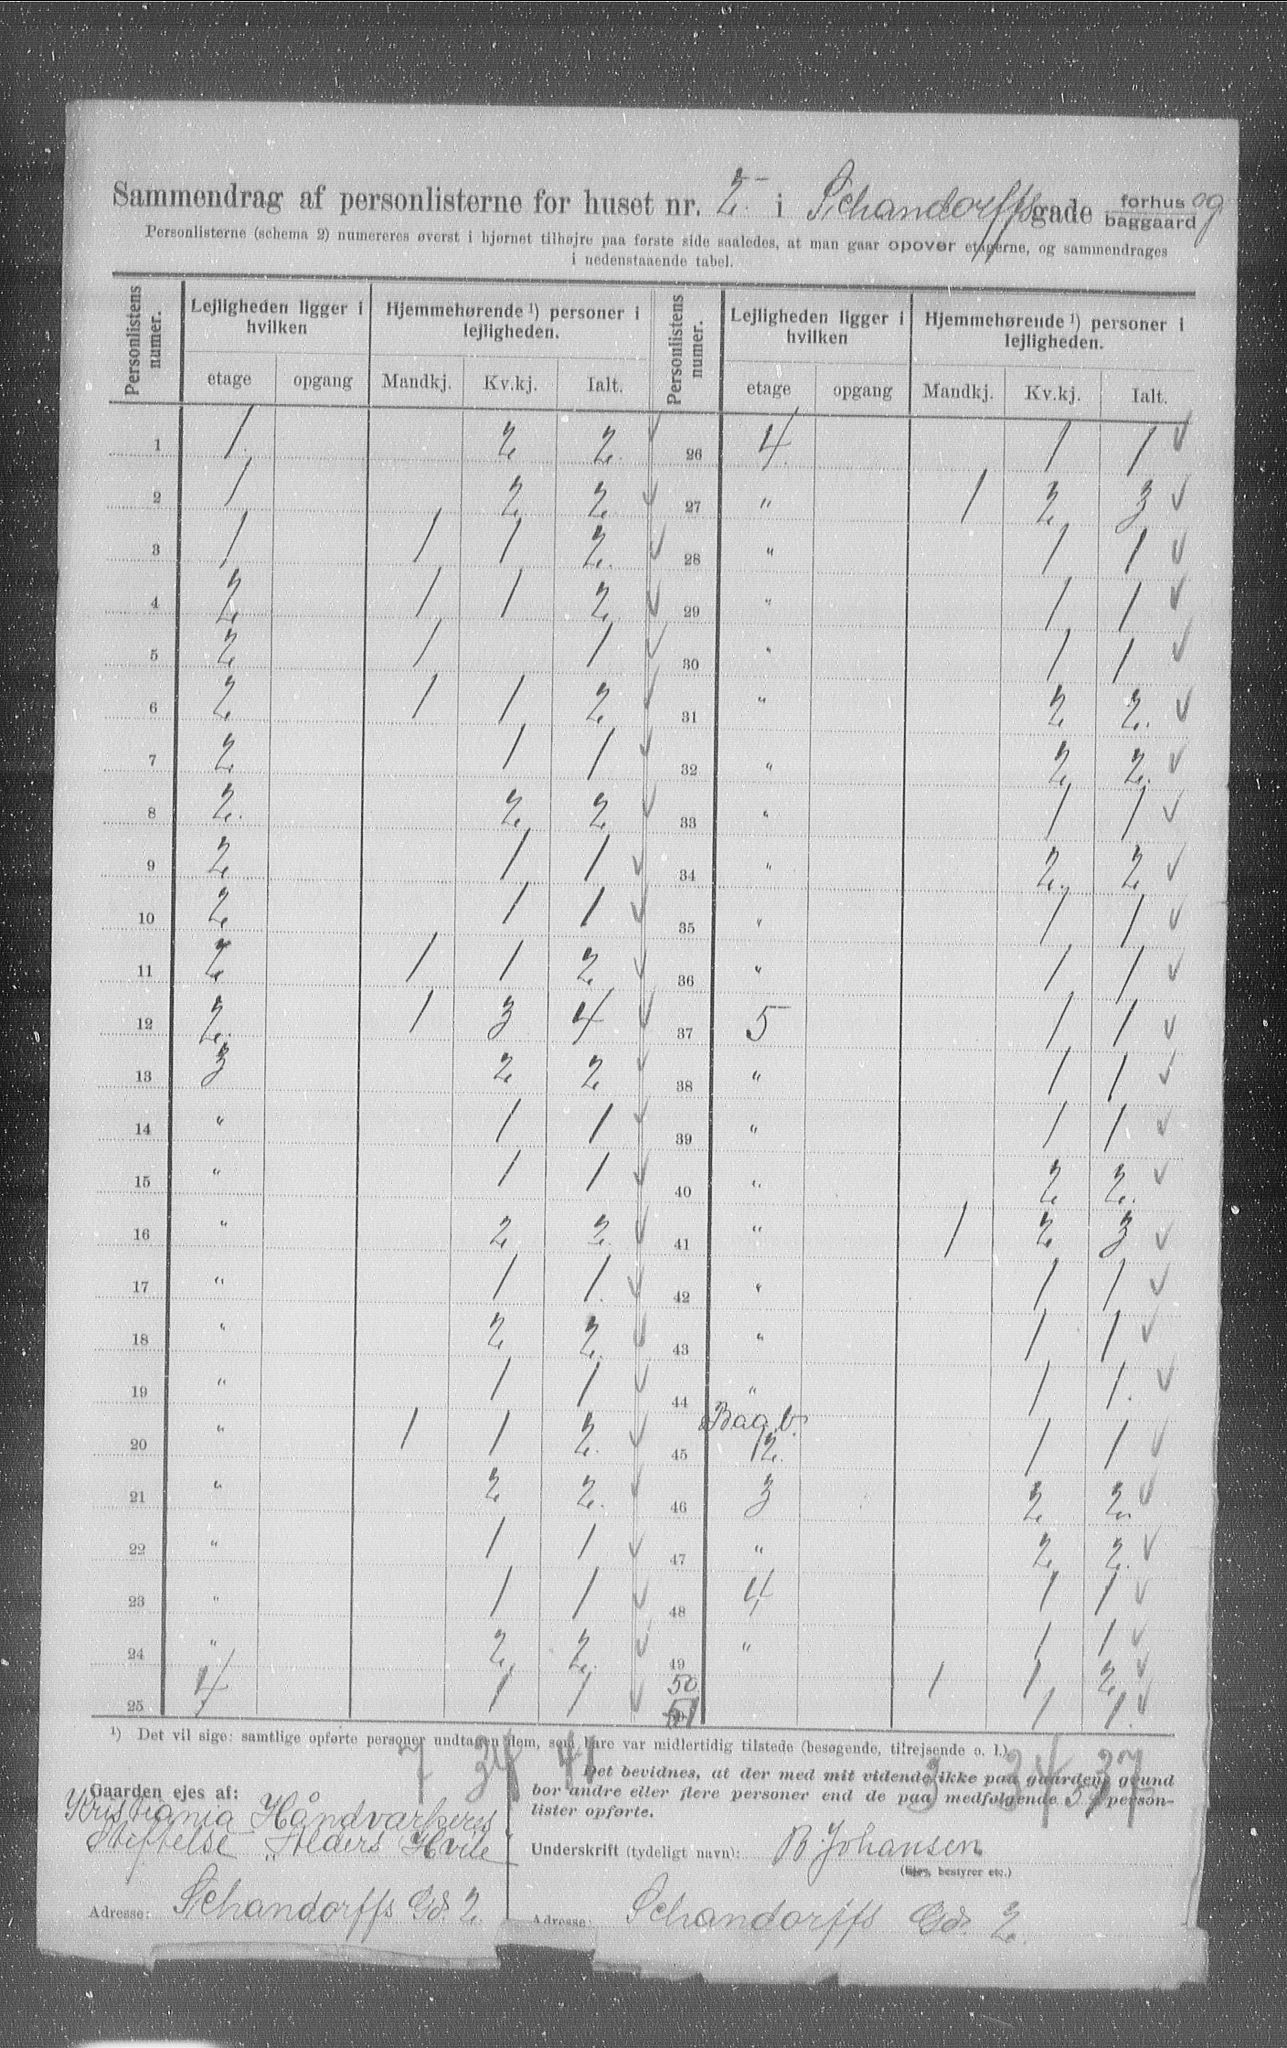 Sammendrag af personlisterne for huset nr. 2 i Schandorffsgade forhus og baggaard
Personlisterne (schema 2) numereres øverst i hjørnet tilhøjre paa første side saaledes, at man gaar opover etagerne, og sammendrages
i nedenstaaende tabel.
Personlistens numer. | Lejligheden ligger i hvilken | Hjemmehørende ¹) personer i lejligheden. | Personlistens numer. | Lejligheden ligger i hvilken | Hjemmehørende ¹) personer i lejligheden.
etage opgang Mandkj. Kv.kj. Ialt. etage opgang Mandkj. Kv.kj. Ialt.
1 1. 2 2. 26 4. 1 1
2 1 2 2 27 " 1 2 3
3 1 1 1 2. 28 " 1 1
4 2 1 1 2. 29 " 1 1
5 2 1 1 30 " 1 1
6 2 1 1 2 31 " 2 2.
7 2 1 1 32 " 2 2.
8 2. 2 2 33 " 1 1
9 2 1 1 34 " 2. 2
10 2 1 1 35 " 1 1
11 2 1 1 2 36 " 1 1
12 2. 1 3 4 37 5 1 1
13 3 2 2 38 " 1 1
14 " 1 1 39 " 1 1
15 " 1 1 40 " 2 2.
16 " 2 2. 41 " 1 2 3
17 " 1 1. 42 " 1 1
18 " 2 2. 43 " 1 1
19 " 1 1 44 " 1 1.
20 " 1 1 2. 45 Bag b. 2. 1 1
21 " 2 2. 46 3 2 2.
22 " 1 1 47 " 2 2.
23 " 1 1 48 4 1 1
24 " 2 2. 49 " 1 1
25 4 1 1 50 1 1 2
51 1 1.
¹) Det vil sige: samtlige opførte personer undtagen dem, som bare var midlertidig tilstede (besøgende, tilrejsende o. l.)
7 34 41 3 34 37
Gaarden ejes af:
Kristiania Håndværkeres
Stiftelse „Alders Hvile"
Adresse: Schandorffs Gd. 2.
Det bevidnes, at der med mit vidende ikke paa gaardens grund
bor andre eller flere personer end de paa medfølgende 51 person-
lister opførte.
Underskrift (tydeligt navn): B. Johansen
(Ejer, bestyrer etc.)
Adresse: Schandorffs Gd. 2.